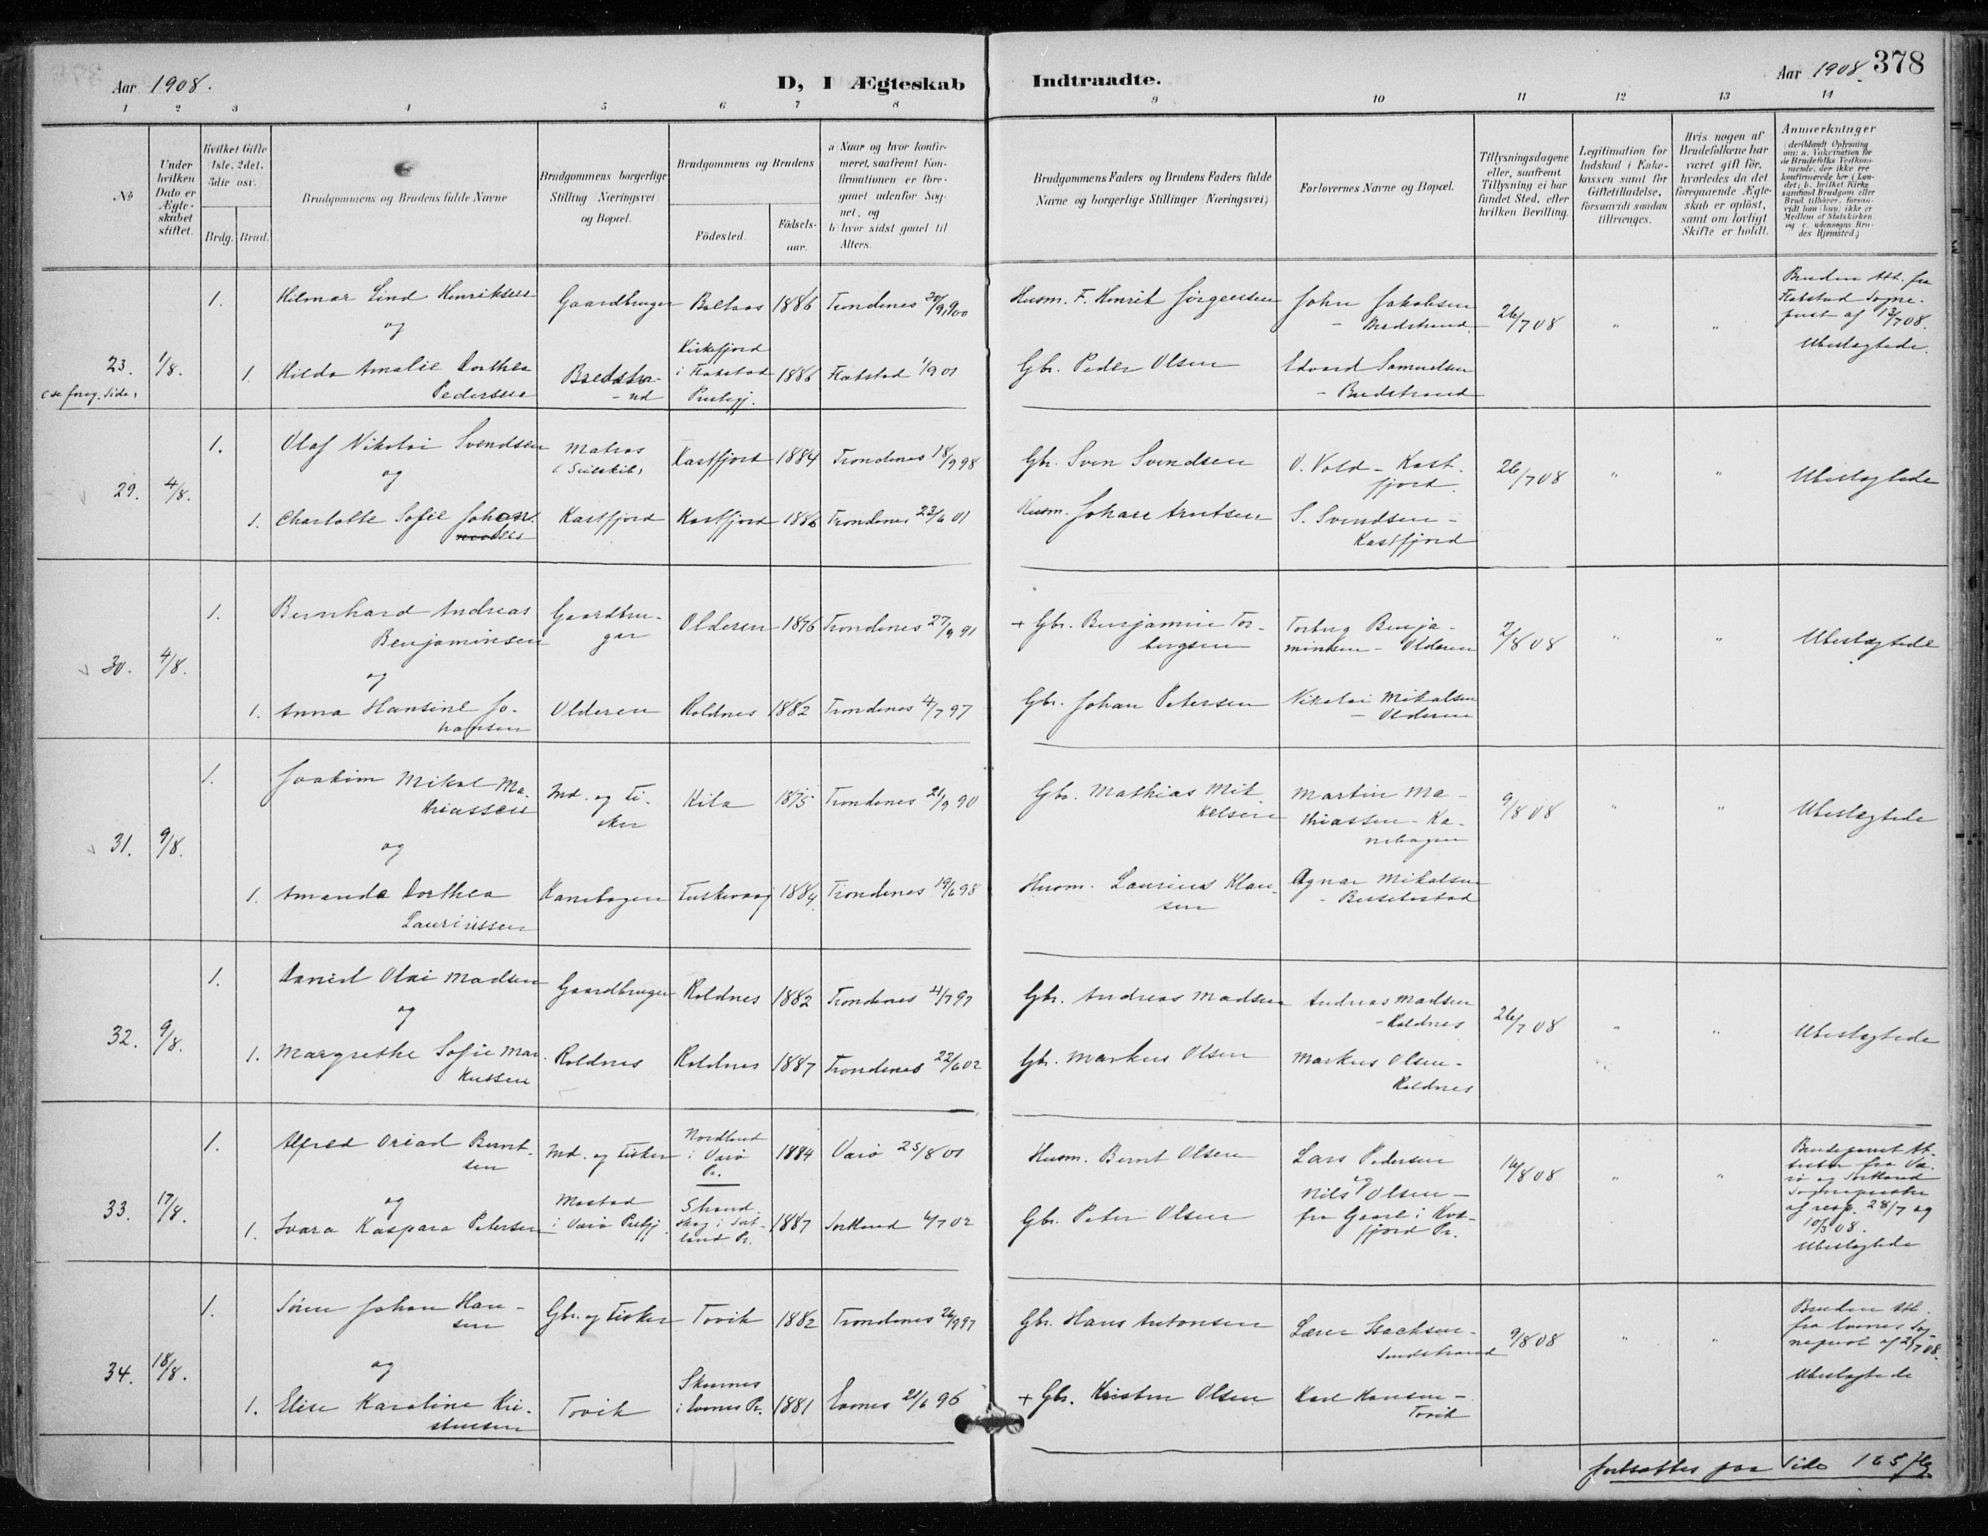 Aar 1908.
D, I Ægteskab
Indtraadte.
Aar 1908.
378
1 2 3 4 5 6 7 8 9 10 11 12 13 14
No
Under hvilken Dato er Ægteskabet stiftet.
Hvilket Gifte 1ste, 2det, 3die osv.
Brdg. Brud.
Brudgommens og Brudens fulde Navne
Brudgommens borgerlige Stilling (Næringsvei) og Bopæl.
Brudgommens og Brudens
Födested.
Födselsaar.
a Naar og hvor konfirmeret, saafremt Konfirmationen er foregaaet udenfor Sognet, og
b hvor sidst gaaet til Alters.
Brudgommens Faders og Brudens Faders fulde Navne og borgerlige Stillinger (Næringsvei)
Forlovernes Navne og Bopæl.
Tillysningsdagene eller, saafremt Tillysning ei har fundet Sted, efter hvilken Bevilling.
Legitimation for Indskud i Enkekassen samt for Giftetilladelse, forsaavidt saadan tiltrænges.
Hvis nogen af Brudefolkene har været gift för, hvorledes da det foregaaende Ægteskab er oplöst, samt om lovligt Skifte er holdt.
Anmærkninger
(deriblandt Oplysning om: a. Vakcination for de Brudefolks Vedkommende, der ikke ere konfirmerede her i Landet; b. hvilket Kirkesamfund Brudgom eller Brud tilhörer, forsaavidt han (hun) ikke er Medlem af Statskirken og c. udensogns Brudes Hjemsted.)
23. 1/8. 1. Hilmar Lind Henriksen Gaardbruger Boltaas 1886 Trondenes 20/9 1900 Husm. F. Henrik Jørgensen John Jakobsen - Bredstrand 26/7 08 " "
Bruden Att. fra Flakstad Sogneprest af 13/7 08.
Ubeslægtede.
og
(se foreg. Side)
1. Hilda Amalie Dorthea Pedersen Bredstrand Kirkefjord i Flakstad Prestegj. 1886 Flakstad 1/9 01 Gbr. Peder Olsen Edvard Samuelsen - Bredstrand
29. 4/8. 1. Olaf Nikolai Svendsen Matros (Seilskib) Kastfjord 1884 Trondenes 18/9 98 Gbr. Sven Svendsen O. Vold - Kastfjord. 26/7 08 " " Ubeslægtede
og
1. Charlotte Sofie Johan Kastfjord Kastfjord 1886 Trondenes 23/6 01 Husm. Johan Arntsen S. Svendsen - Kastfjord
30. 4/8. 1. Bernhard Andreas Benjaminsen Gaardbruger Olderen 1876 Trondenes 27/9 91 + Gbr. Benjamin Torbergsen Torberg Benjaminsen - Olderen 2/8 08 " " Ubeslægtede
og
1. Anna Hansine Johansen Olderen Roldnes 1882 Trondenes 4/7 97 Gbr. Johan Petersen Nikolai Mikalsen - Olderen
31. 9/8. 1. Joakim Mikal Mathiassen Ind. og Fisker Kila 1875 Trondenes 21/9 90 Gbr. Mathias Mikkelsen Martin Mathiassen - Kanebogen 9/8 08 " " Ubeslægtede
og
1. Amanda Dorthea Laurinssen Kanebogen Tuskevaag 1884 Trondenes 19/6 98 Husm. Laurinus Klausen Agnar Mikalsen - Bessebostad
32. 9/8. 1. Daniel Olai Madsen Gaardbruger Roldnes 1882 Trondenes 4/7 97 Gbr. Andreas Madsen Andreas Madsen - Roldnes 26/7 08 " " Ubeslægtede
og
1. Margrethe Sofie Markussen Roldnes Roldnes 1887 Trondenes 22/6 02 Gbr. Markus Olsen Markus Olsen - Roldnes
33. 17/8. 1. Alfred Oriad Berntsen Ind. og Fisker Nordland i Værø Pr. 1884 Værø 25/8 01 Husm. Bernt Olsen Lars Pedersen og Nils Olsen - fra Gaare i Kvæfjord Pr. 16/8 08 " "
Brudeparret Attester fra Værø og Sortland Sogneprester af resp. 28/7 og 10/3 08.
Ubeslægtede
og
1. Svara Kaspara Petersen Mostad i Værø Prstgj. Strandskog i Sortland Pr. 1887 Sortland 6/7 02 Gbr. Peter Olsen
34. 18/8. 1. Søren Johan Hansen Gbr. og Fisker Tovik 1882 Trondenes 26/9 97 Gbr. Hans Antonsen Isachsen - Sandstrand 9/8 08 " "
Bruden Att. fra Evenes Sogneprest af 21/7 08.
Ubeslægtede
og
1. Elise Karoline Kristensen Tovik i Evenes Pr. 1881 Evenes 21/6 96 + Gbr. Kristen Olsen Karl Hansen - Tovik
fortsættes paa Side 165 flg